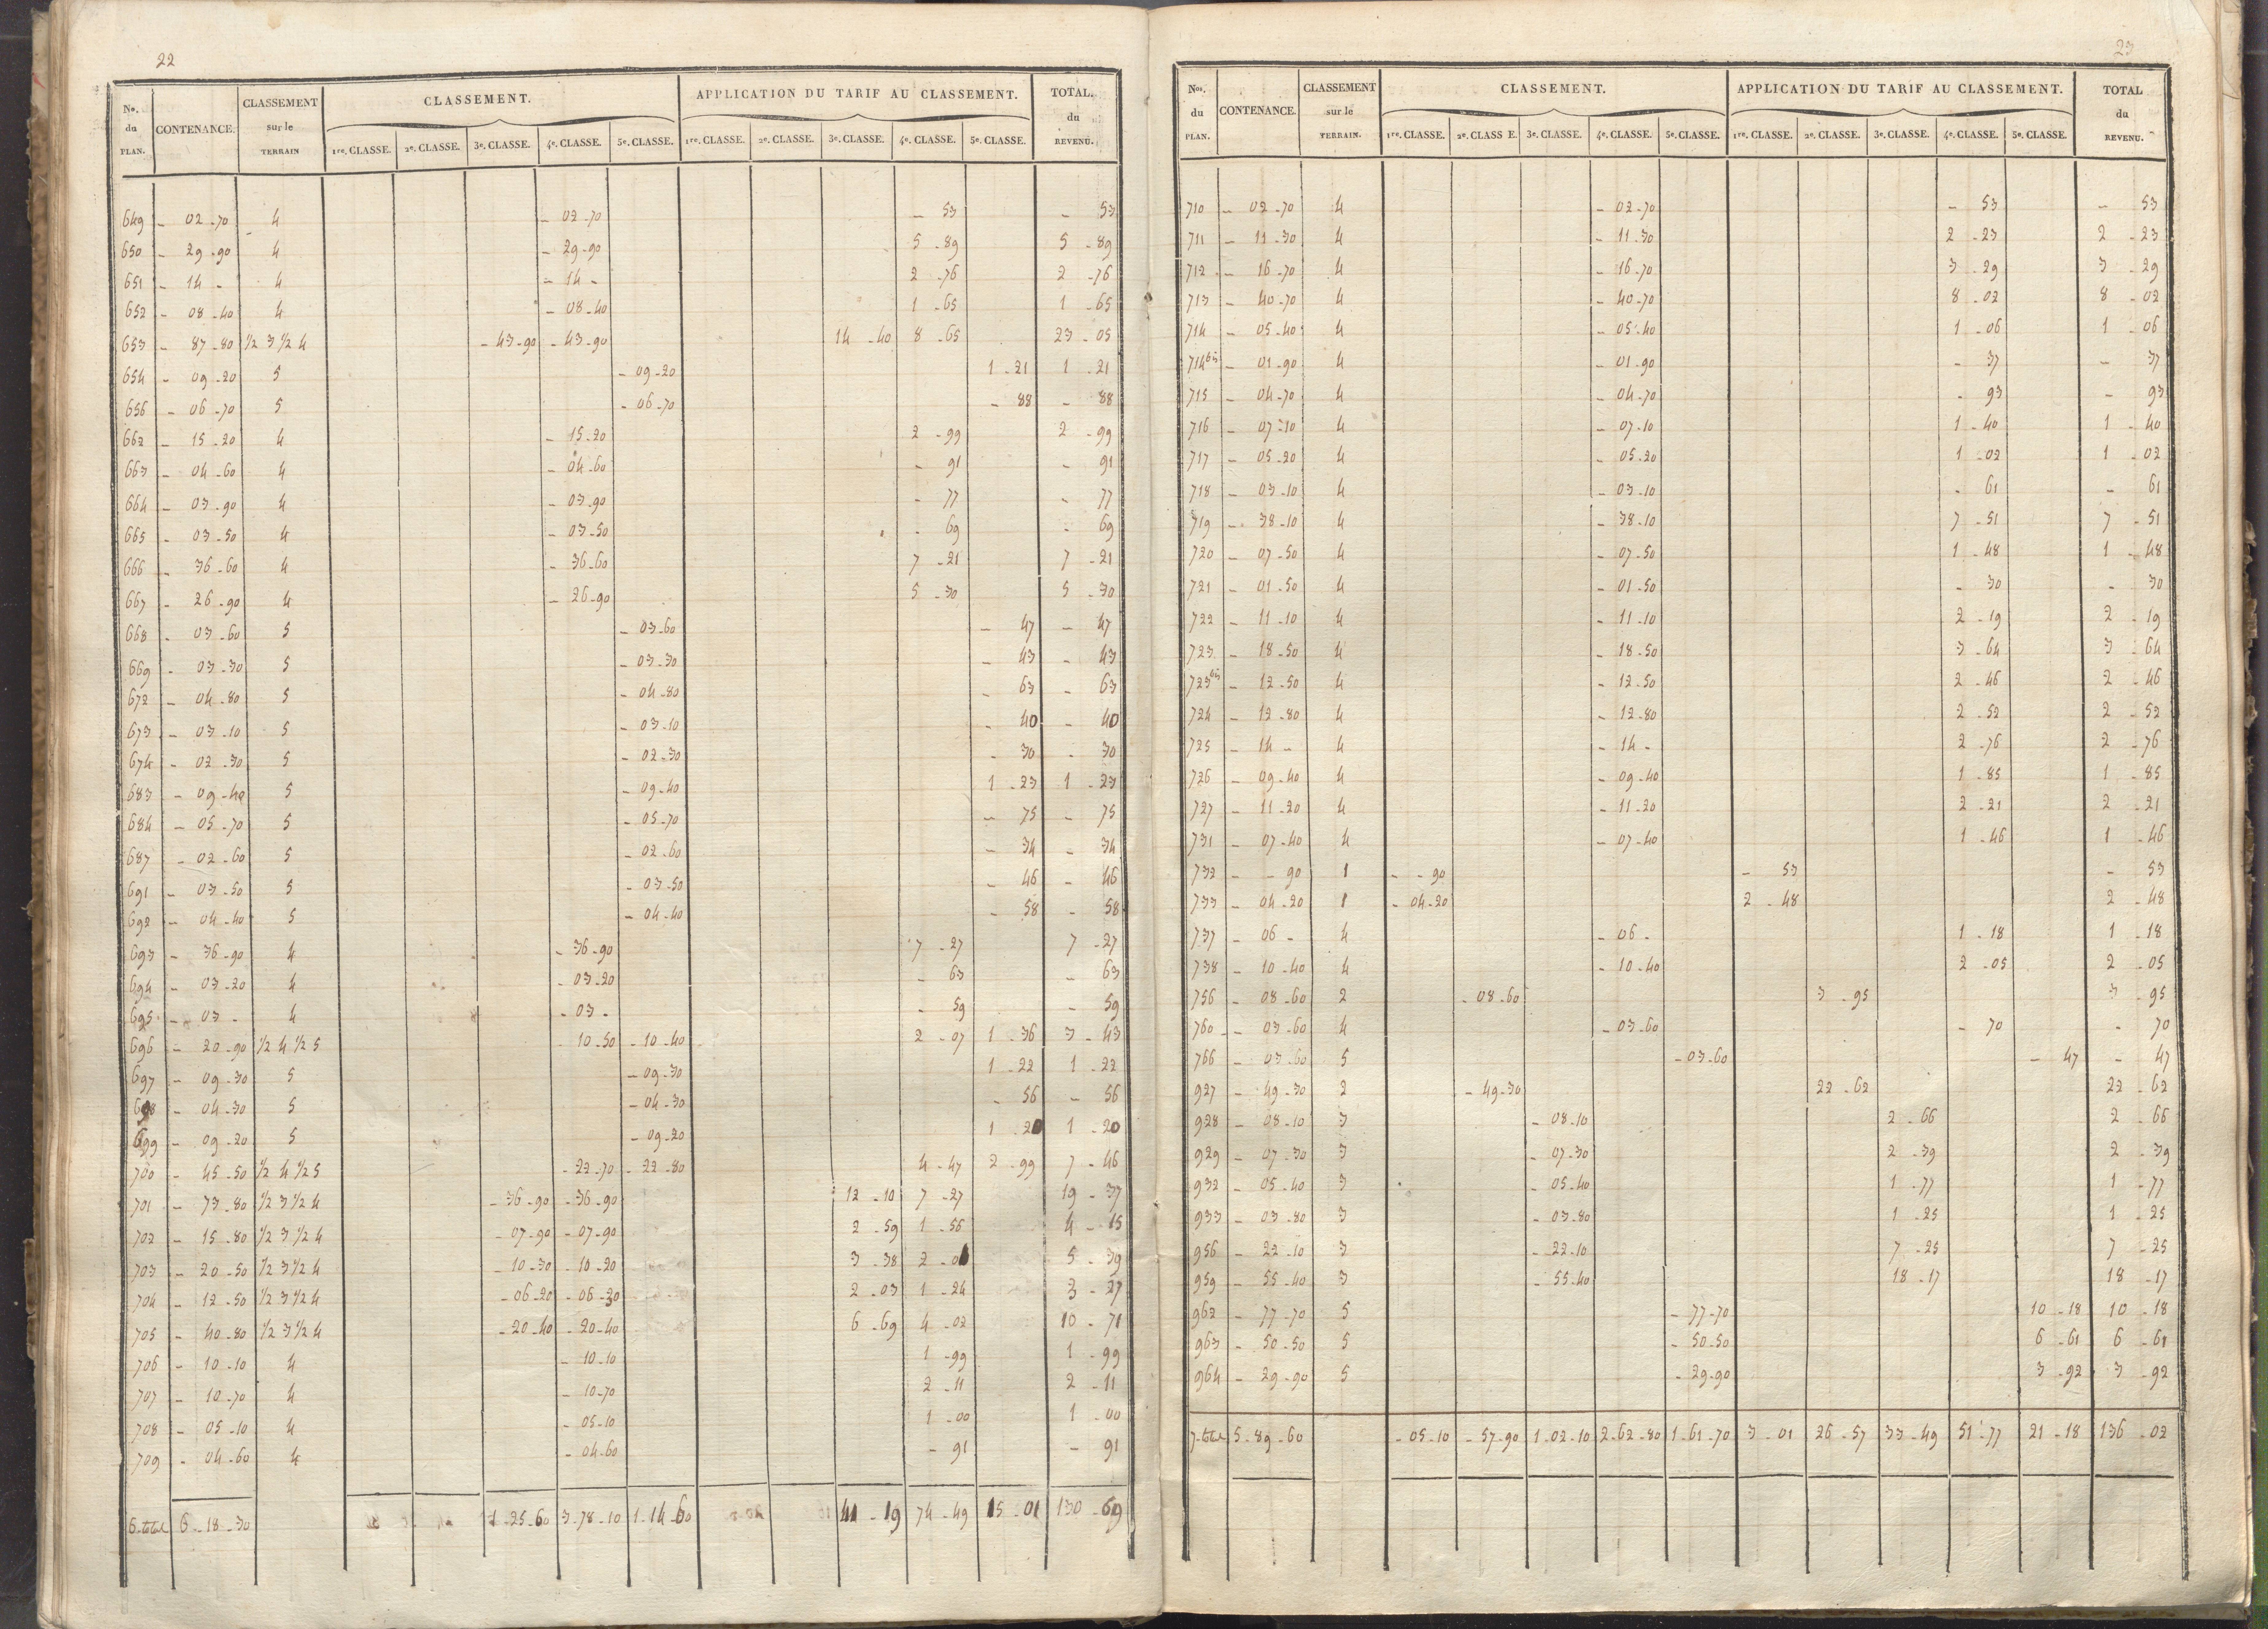 22
Nos. du PLAN. CONTENANCE. CLASSEMENT sur le TERRAIN CLASSEMENT. APPLICATION DU TARIF AU CLASSEMENT. TOTAL. du REVENU.
1re. CLASSE. 2e. CLASSE. 3e. CLASSE. 4e. CLASSE. 5e. CLASSE. 1re. CLASSE. 2e. CLASSE. 3e. CLASSE. 4e. CLASSE. 5e. CLASSE.
649 - 02-70 4 - 02-70 - 53 - 53
650 - 29-90 4 - 29-90 5-89 5-89
651 - 14 - 4 - 14 - 2-76 2-76
652 - 08-40 4 - 08-40 1-65 1-65
653 - 87-80 1/2 3 1/2 4 - 43-90 - 43-90 14-40 8-65 23-05
654 - 09-20 5 - 09-20 1-21 1-21
656 - 06-70 5 - 06-70 - 88 - 88
662 - 15-20 4 - 15-20 2-99 2-99
663 - 04-60 4 - 04-60 - 91 - 91
664 - 03-90 4 - 03-90 - 77 - 77
665 - 03-50 4 - 03-50 - 69 - 69
666 - 36-60 4 - 36-60 7-21 7-21
667 - 26-90 4 - 26-90 5-30 5-30
668 - 03-60 5 - 03-60 - 47 - 47
669 - 03-30 5 - 03-30 - 43 - 43
672 - 04-80 5 - 04-80 - 63 - 63
673 - 03-10 5 - 03-10 - 40 - 40
674 - 02-30 5 - 02-30 - 30 - 30
683 - 09-40 5 - 09-40 1-23 1-23
684 - 05-70 5 - 05-70 - 75 - 75
687 - 02-60 5 - 02-60 - 34 - 34
691 - 03-50 5 - 03-50 - 46 - 46
692 - 04-40 5 - 04-40 - 58 - 58
693 - 36-90 4 - 36-90 7-27 7-27
694 - 03-20 4 - 03-20 - 63 - 63
695 - 03 - 4 - 03 - - 59 - 59
696 - 20-90 1/2 4 1/2 5 10-50 - 10-40 2-07 1-36 3-43
697 - 09-30 5 - 09-30 1-22 1-22
698 - 04-30 5 - 04-30 - 56 - 56
699 - 09-20 5 - 09-20 1-20 1-20
700 - 45-50 1/2 4 1/2 5 - 22-70 - 22-80 4-47 2-99 7-46
701 - 73-80 1/2 3 1/2 4 - 36-90 - 36-90 12-10 7-27 19-37
702 - 15-80 1/2 3 1/2 4 - 07-90 - 07-90 2-59 1-56 4-15
703 - 20-50 1/2 3 1/2 4 - 10-30 - 10-20 3-38 2-01 5-39
704 - 12-50 1/2 3 1/2 4 - 06-20 - 06-30 2-03 1-24 3-27
705 - 40-80 1/2 3 1/2 4 - 20-40 - 20-40 6-69 4-02 10-71
706 - 10-10 4 - 10-10 1-99 1-99
707 - 10-70 4 - 10-70 2-11 2-11
708 - 05-10 4 - 05-10 1-00 1-00
709 - 04-60 4 - 04-60 - 91 - 91
6-total 6-18-30 1-25-60 3-78-10 1-14-60 41-19 74-49 15-01 130-69
23
Nos. du PLAN. CONTENANCE. CLASSEMENT sur le TERRAIN. CLASSEMENT. APPLICATION DU TARIF AU CLASSEMENT. TOTAL du REVENU.
1re. CLASSE. 2e. CLASSE. 3e. CLASSE. 4e. CLASSE. 5e. CLASSE. 1re. CLASSE. 2e. CLASSE. 3e. CLASSE. 4e. CLASSE. 5e. CLASSE.
710 - 02-70 4 - 02-70 - 53 - 53
711 - 11-30 4 - 11-30 2-23 2-23
712 - 16-70 4 - 16-70 3-29 3-29
713 - 40-70 4 - 40-70 8-02 8-02
714 - 05-40 4 - 05-40 1-06 1-06
714bis - 01-90 4 - 01-90 - 37 - 37
715 - 04-70 4 - 04-70 - 93 - 93
716 - 07-10 4 - 07-10 1-40 1-40
717 - 05-20 4 - 05-20 1-02 1-02
718 - 03-10 4 - 03-10 - 61 - 61
719 - 38-10 4 - 38-10 7-51 7-51
720 - 07-50 4 - 07-50 1-48 1-48
721 - 01-50 4 - 01-50 - 30 - 30
722 - 11-10 4 - 11-10 2-19 2-19
723 - 18-50 4 - 18-50 3-64 3-64
723bis - 12-50 4 - 12-50 2-46 2-46
724 - 12-80 4 - 12-80 2-52 2-52
725 - 14 - 4 - 14 - 2-76 2-76
726 - 09-40 4 - 09-40 1-85 1-85
727 - 11-20 4 - 11-20 2-21 2-21
731 - 07-40 4 - 07-40 1-46 1-46
732 - - 90 1 - - 90 - 53 - 53
733 - 04-20 1 - 04-20 2-48 2-48
737 - 06 - 4 - 06 - 1-18 1-18
738 - 10-40 4 - 10-40 2-05 2-05
756 - 08-60 2 - 08-60 3-95 3-95
760 - 03-60 4 - 03-60 - 70 - 70
766 - 03-60 5 - 03-60 - 47 - 47
927 - 49-30 2 - 49-30 22-62 22-62
928 - 08-10 3 - 08-10 2-66 2-66
929 - 07-30 3 - 07-30 2-39 2-39
932 - 05-40 3 - 05-40 1-77 1-77
933 - 03-80 3 - 03-80 1-25 1-25
956 - 22-10 3 - 22-10 7-25 7-25
959 - 55-40 3 - 55-40 18-17 18-17
962 - 77-70 5 - 77-70 10-18 10-18
963 - 50-50 5 - 50-50 6-61 6-61
964 - 29-90 5 - 29-90 3-92 3-92
7-total 5-89-60 - 05-10 - 57-90 1-02-10 2-62-80 1-61-70 3-01 26-57 33-49 51-77 21-18 136-02